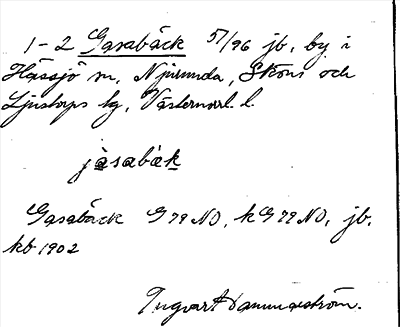 1-2 Gasabäck 57/96 jb, by i
Hässjö sn, Njurunda, Sköns och
Ljustorps tg, Västernorrl. l.
jàsabäk
Gasabäck G 79 NO, kG 79 NO, jb,
kb 1902
Ingvart Dammarström.